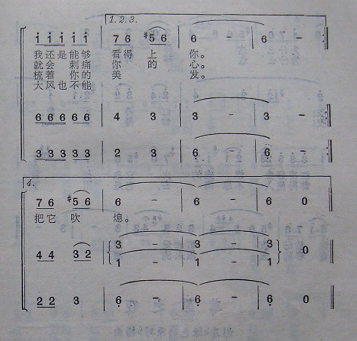 1.2.3.
i i i i i | 7 6 #5 6 | 6 - | 6 - :
我还是能够 看得上 你。
就会刺痛 你的 心。
梳着你的 美 发。
大风也不能
6 6 6 6 6 | 4 3 | 3 - | 3 - :
3 3 3 3 3 | 2 3 | 6 - | 6 - :
4.
7 6 #5 6 | 6 - | 6 - | 6 0
把它吹 熄。
4 4 3 2 | 3 - | 3 - | 3 0
1 - | 1 - | 1
2 2 3 | 6 - | 6 - | 6 0